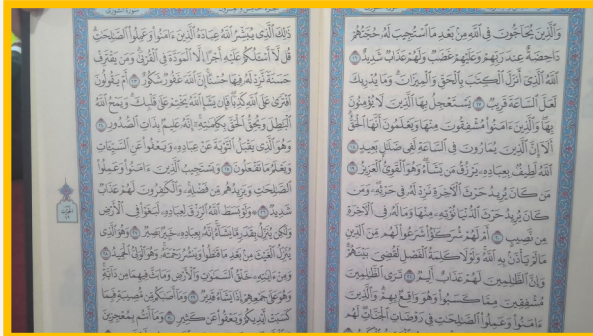 وَالَّذِينَ يُحَاجُّونَ فِي اللَّهِ مِنْ بَعْدِ مَا اسْتُجِيبَ لَهُ حُجَّتُهُمْ
دَاحِضَةٌ عِندَ رَبِّهِمْ وَعَلَيْهِمْ غَضَبٌ وَلَهُمْ عَذَابٌ شَدِيدٌ ١٦
اللَّهُ الَّذِي أَنزَلَ الْكِتَٰبَ بِالْحَقِّ وَالْمِيزَانَ وَمَا يُدْرِيكَ
لَعَلَّ السَّاعَةَ قَرِيبٌ ١٧ يَسْتَعْجِلُ بِهَا الَّذِينَ لَا يُؤْمِنُونَ
بِهَا وَالَّذِينَ ءَامَنُوا مُشْفِقُونَ مِنْهَا وَيَعْلَمُونَ أَنَّهَا الْحَقُّ
أَلَا إِنَّ الَّذِينَ يُمَارُونَ فِي السَّاعَةِ لَفِي ضَلَٰلٍ بَعِيدٍ ١٨
اللَّهُ لَطِيفٌ بِعِبَادِهِ يَرْزُقُ مَن يَشَاءُ وَهُوَ الْقَوِيُّ الْعَزِيزُ ١٩
مَن كَانَ يُرِيدُ حَرْثَ الْأَخِرَةِ نَزِدْ لَهُ فِي حَرْثِهِ وَمَن
كَانَ يُرِيدُ حَرْثَ الدُّنْيَا نُؤْتِهِ مِنْهَا وَمَا لَهُ فِي الْأَخِرَةِ
مِن نَّصِيبٍ ٢٠ أَمْ لَهُمْ شُرَكَٰؤُا شَرَعُوا لَهُم مِّنَ الدِّينِ
مَا لَمْ يَأْذَن بِهِ اللَّهُ وَلَوْلَا كَلِمَةُ الْفَصْلِ لَقُضِيَ بَيْنَهُمْ
وَإِنَّ الظَّٰلِمِينَ لَهُمْ عَذَابٌ أَلِيمٌ ٢١ تَرَى الظَّٰلِمِينَ
مُشْفِقِينَ مِمَّا كَسَبُوا وَهُوَ وَاقِعٌ بِهِمْ وَالَّذِينَ
ءَامَنُوا وَعَمِلُوا الصَّٰلِحَٰتِ فِي رَوْضَاتِ الْجَنَّاتِ لَهُم
سورة الشورى
ذَٰلِكَ الَّذِي يُبَشِّرُ اللَّهُ عِبَادَهُ الَّذِينَ ءَامَنُوا وَعَمِلُوا الصَّٰلِحَٰتِ
قُل لَّا أَسْـَٔلُكُمْ عَلَيْهِ أَجْرًا إِلَّا الْمَوَدَّةَ فِي الْقُرْبَىٰ وَمَن يَقْتَرِفْ
حَسَنَةً نَّزِدْ لَهُ فِيهَا حُسْنًا إِنَّ اللَّهَ غَفُورٌ شَكُورٌ ٢٣ أَمْ يَقُولُونَ
افْتَرَىٰ عَلَى اللَّهِ كَذِبًا فَإِن يَشَإِ اللَّهُ يَخْتِمْ عَلَىٰ قَلْبِكَ وَيَمْحُ اللَّهُ
الْبَٰطِلَ وَيُحِقُّ الْحَقَّ بِكَلِمَٰتِهِ إِنَّهُ عَلِيمٌ بِذَاتِ الصُّدُورِ ٢٤
وَهُوَ الَّذِي يَقْبَلُ التَّوْبَةَ عَنْ عِبَادِهِ وَيَعْفُوا عَنِ السَّيِّـَٔاتِ
وَيَعْلَمُ مَا تَفْعَلُونَ ٢٥ وَيَسْتَجِيبُ الَّذِينَ ءَامَنُوا وَعَمِلُوا
الصَّٰلِحَٰتِ وَيَزِيدُهُم مِّن فَضْلِهِ وَالْكَٰفِرُونَ لَهُمْ عَذَابٌ
شَدِيدٌ ٢٦ وَلَوْ بَسَطَ اللَّهُ الرِّزْقَ لِعِبَادِهِ لَبَغَوْا فِي الْأَرْضِ
وَلَٰكِن يُنَزِّلُ بِقَدَرٍ مَّا يَشَاءُ إِنَّهُ بِعِبَادِهِ خَبِيرٌ بَصِيرٌ ٢٧ وَهُوَ الَّذِي
يُنَزِّلُ الْغَيْثَ مِنْ بَعْدِ مَا قَنَطُوا وَيَنشُرُ رَحْمَتَهُ وَهُوَ الْوَلِيُّ الْحَمِيدُ ٢٨
وَمِنْ ءَايَٰتِهِ خَلْقُ السَّمَٰوَٰتِ وَالْأَرْضِ وَمَا بَثَّ فِيهِمَا مِن دَابَّةٍ
وَهُوَ عَلَىٰ جَمْعِهِمْ إِذَا يَشَاءُ قَدِيرٌ ٢٩ وَمَا أَصَٰبَكُم مِّن مُّصِيبَةٍ فَبِمَا
كَسَبَتْ أَيْدِيكُمْ وَيَعْفُوا عَن كَثِيرٍ ٣٠ وَمَا أَنتُم بِمُعْجِزِينَ